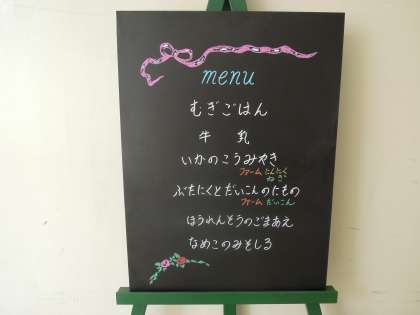 menu
むぎごはん
牛乳
いかのこうみやき
ファーム にんにく
ねぎ
ぶたにくとだいこんのにもの
ファーム だいこん
ほうれんそうのごまあえ
なめこのみそしる